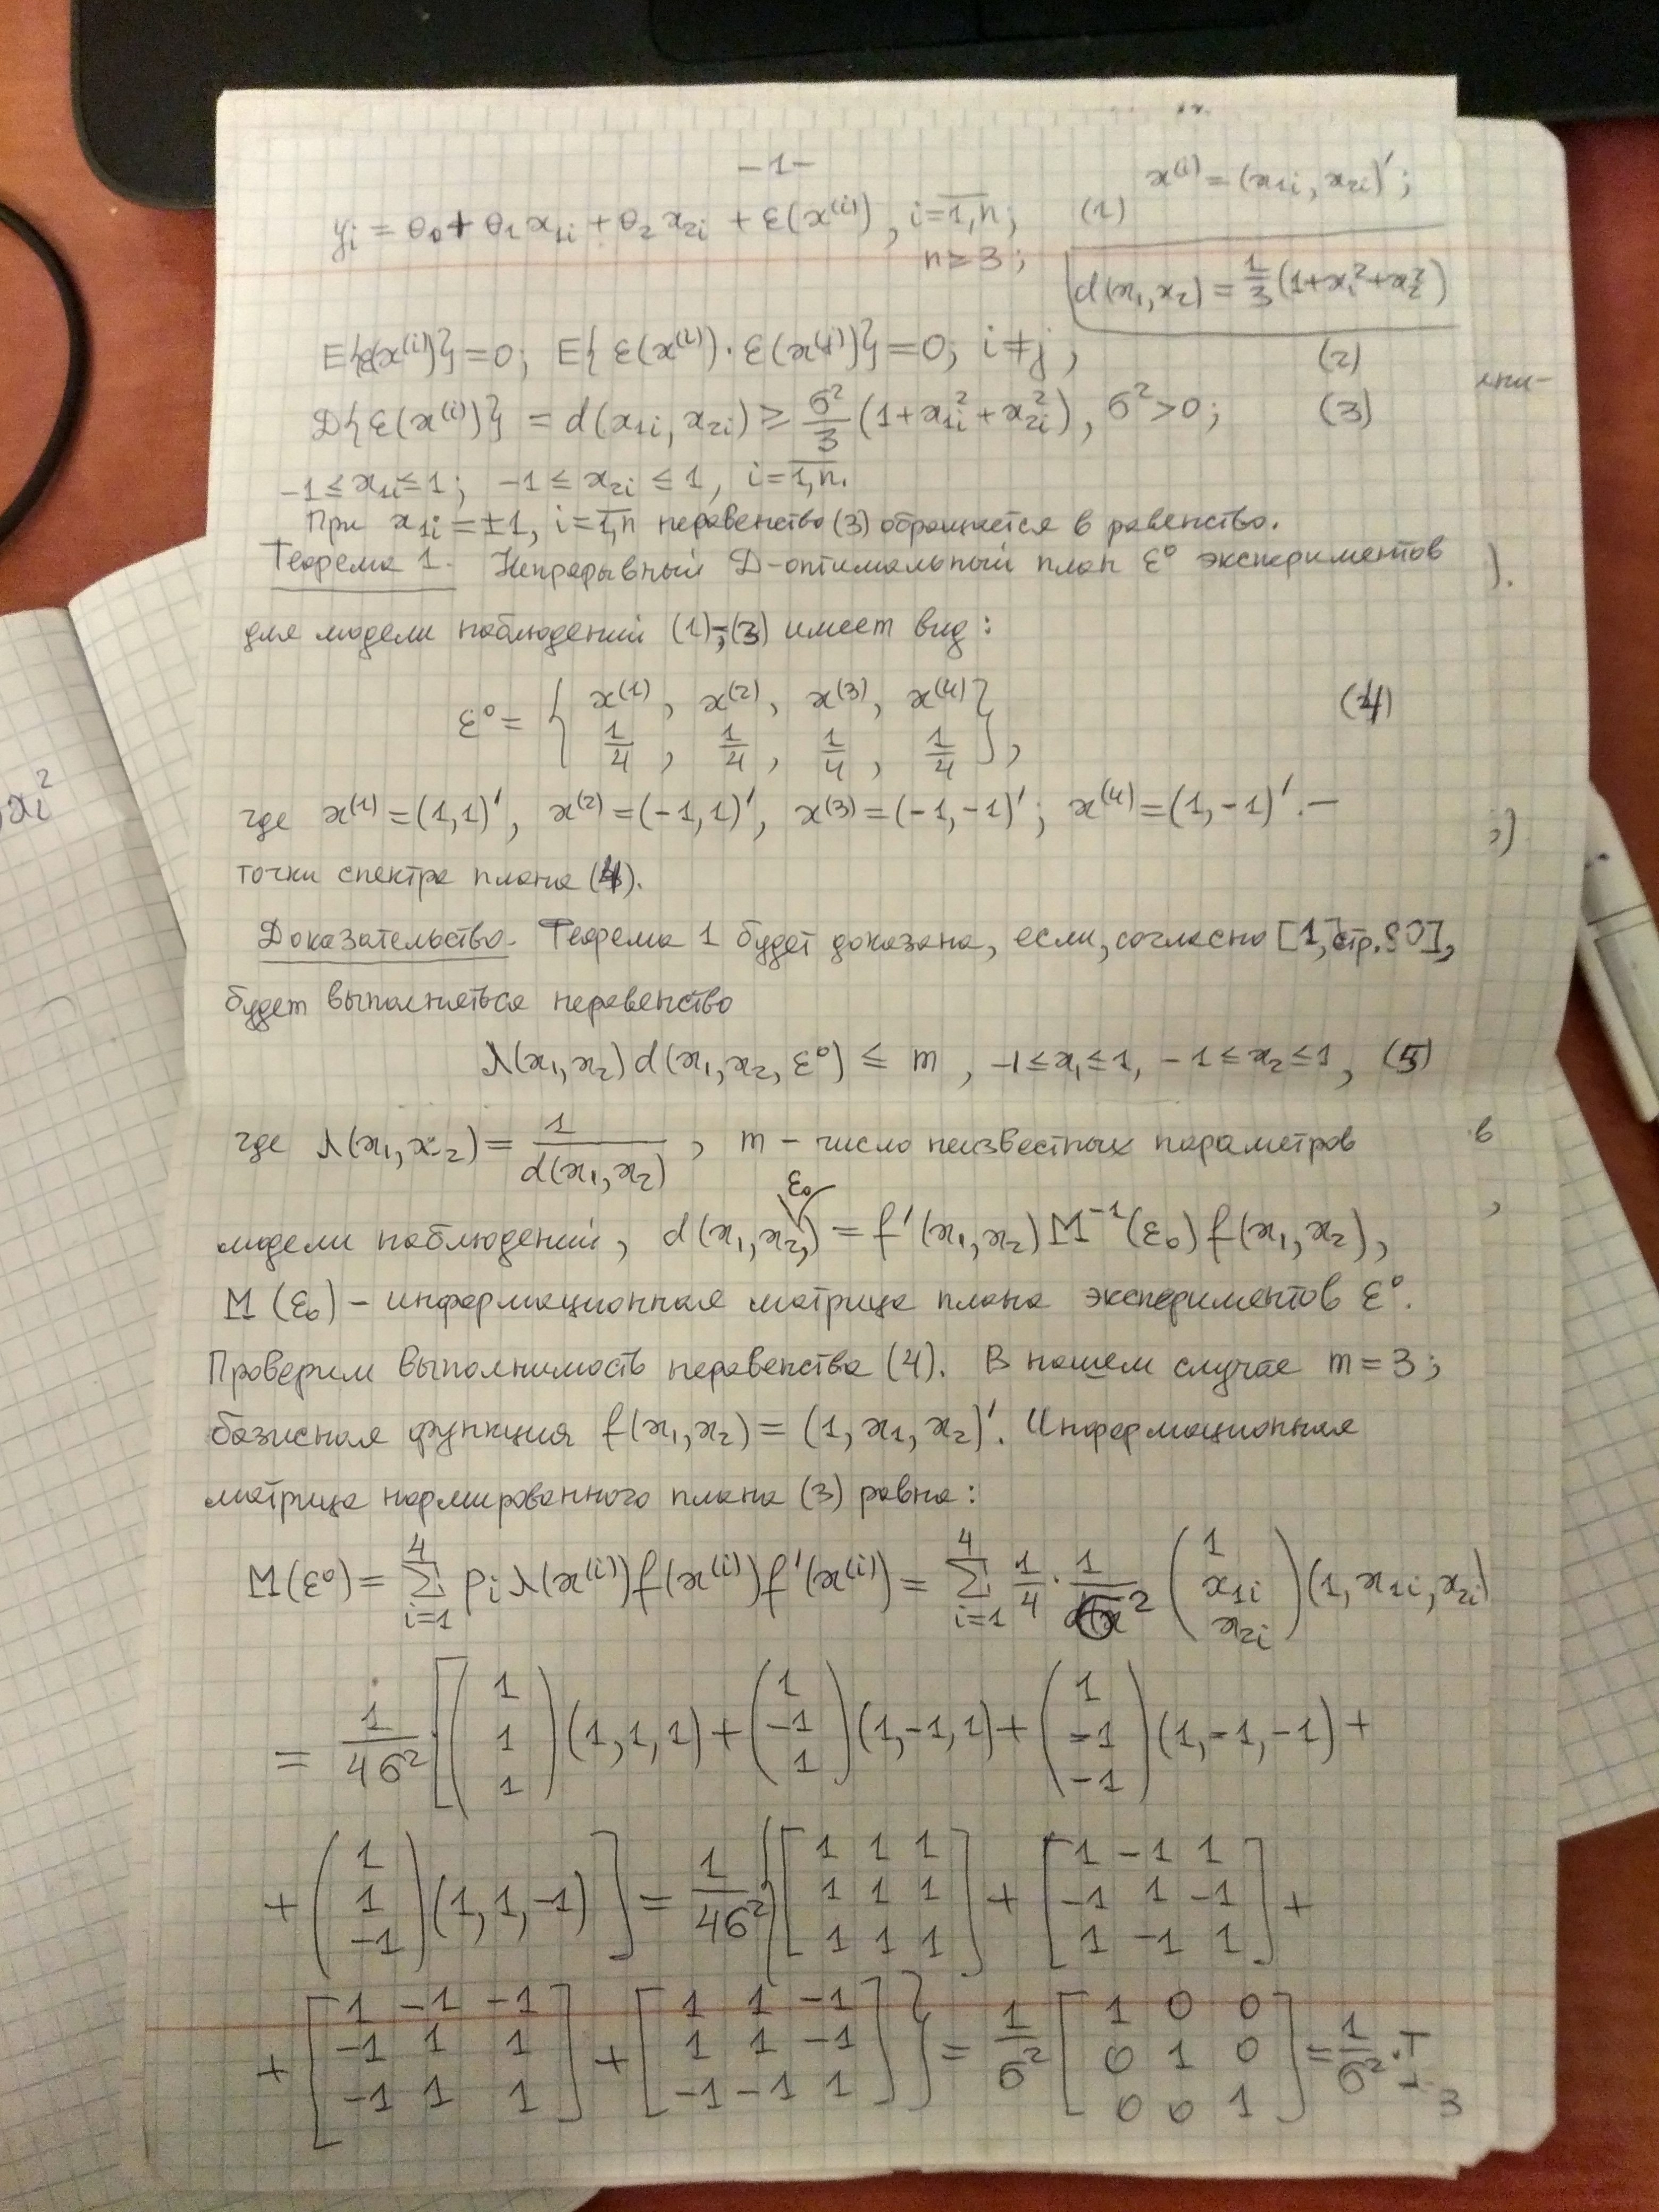 -1-
x⁽ⁱ⁾ = (x₁ᵢ, x₂ᵢ)′;
yᵢ = θ₀ + θ₁x₁ᵢ + θ₂x₂ᵢ + ε(x⁽ⁱ⁾), i=1,n; (1)
n≥3;
d(x₁,x₂) = 1/3 (1+x₁²+x₂²)
E{ε(x⁽ⁱ⁾)}=0; E{ε(x⁽ⁱ⁾)·ε(x⁽ʲ⁾)}=0; i≠j, (2)
D{ε(x⁽ⁱ⁾)} = d(x₁ᵢ, x₂ᵢ) ≥ σ²/3 (1+x₁ᵢ²+x₂ᵢ²), σ²>0; (3)
-1≤x₁ᵢ≤1; -1≤x₂ᵢ≤1, i=1,n.
При x₁ᵢ=±1, i=1,n неравенство (3) обращается в равенство.
Теорема 1. Непрерывный D-оптимальный план ε⁰ экспериментов
для модели наблюдений (1)-(3) имеет вид:
ε⁰ = { x⁽¹⁾, x⁽²⁾, x⁽³⁾, x⁽⁴⁾ (4)
1/4, 1/4, 1/4, 1/4 },
где x⁽¹⁾=(1,1)′, x⁽²⁾=(-1,1)′, x⁽³⁾=(-1,-1)′; x⁽⁴⁾=(1,-1)′. –
точки спектра плана (4).
Доказательство. Теорема 1 будет доказана, если, согласно [1, стр. 90],
будет выполняться неравенство
λ(x₁,x₂) d(x₁,x₂,ε⁰) ≤ m, -1≤x₁≤1, -1≤x₂≤1, (5)
где λ(x₁,x₂) = 1/d(x₁,x₂), m – число неизвестных параметров
модели наблюдений, d(x₁,x₂,ε₀) = f′(x₁,x₂) M⁻¹(ε₀) f(x₁,x₂),
M(ε₀) – информационная матрица плана экспериментов ε⁰.
Проверим выполнимость неравенства (4). В нашем случае m=3;
базисная функция f(x₁,x₂) = (1,x₁,x₂)′. Информационная
матрица нормированного плана (3) равна:
M(ε⁰) = Σ⁴ᵢ₌₁ pᵢ λ(x⁽ⁱ⁾) f(x⁽ⁱ⁾) f′(x⁽ⁱ⁾) = Σ⁴ᵢ₌₁ 1/4 · 1/σ² (1 x₁ᵢ x₂ᵢ) (1, x₁ᵢ, x₂ᵢ)
= 1/4σ² [(1 1 1)(1,1,1) + (1 -1 1)(1,-1,1) + (1 -1 -1)(1,-1,-1) +
+ (1 1 -1)(1,1,-1)] = 1/4σ² {[1 1 1 1 1 1 1 1 1] + [1 -1 1 -1 1 -1 1 -1 1] +
+ [1 -1 -1 -1 1 1 -1 1 1] + [1 1 -1 1 1 -1 -1 -1 1]} = 1/σ² [1 0 0 0 1 0 0 0 1] = 1/σ² · I₃
xᵢ²